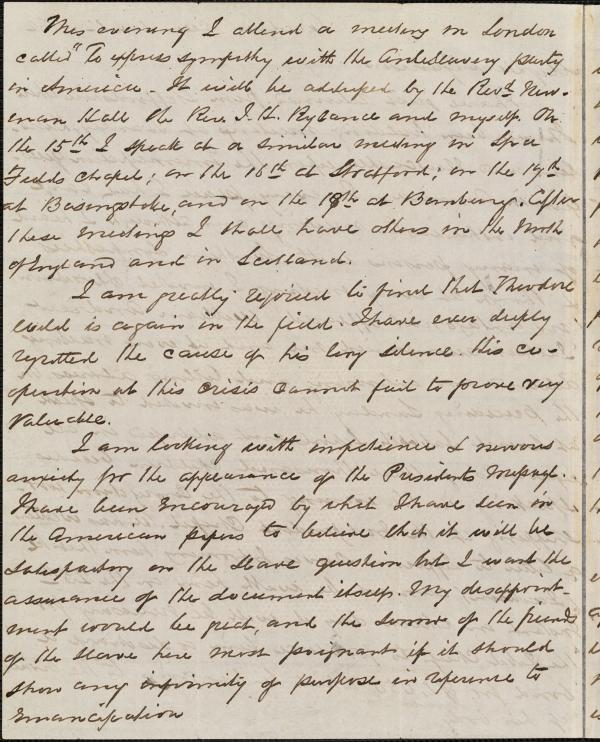 This evening I attend a meeting in London
called "To express sympathy with the Antislavery party
in America. It will be addressed by the Revd. New-
man Hall the Rev. J. H. Rylance and myself. On
the 15th I speak at a similar meeting in Spa
Fields Chapel; on the 16th at Stratford; on the 17th
at Basingstoke, and on the 18th at Banbury. After
these meetings I shall have others in the North
of England and in Scotland.
I am greatly rejoiced to find that Theodore
Weld is again in the field. I have ever deeply
regretted the cause of his long silence. His co-
operation at this crisis cannot fail to prove very
valuable.
I am looking with impatience & nervous
anxiety for the appearance of the Presidents Message.
I have been encouraged by what I have seen in
the American papers to believe that it will be
satisfactory on the slave question but I want the
assurance of the document itself. My disappoint-
ment would be great, and the sorrow of the friends
of the slave here most poignant if it should
show any infirmity of purpose in reference to
Emancipation